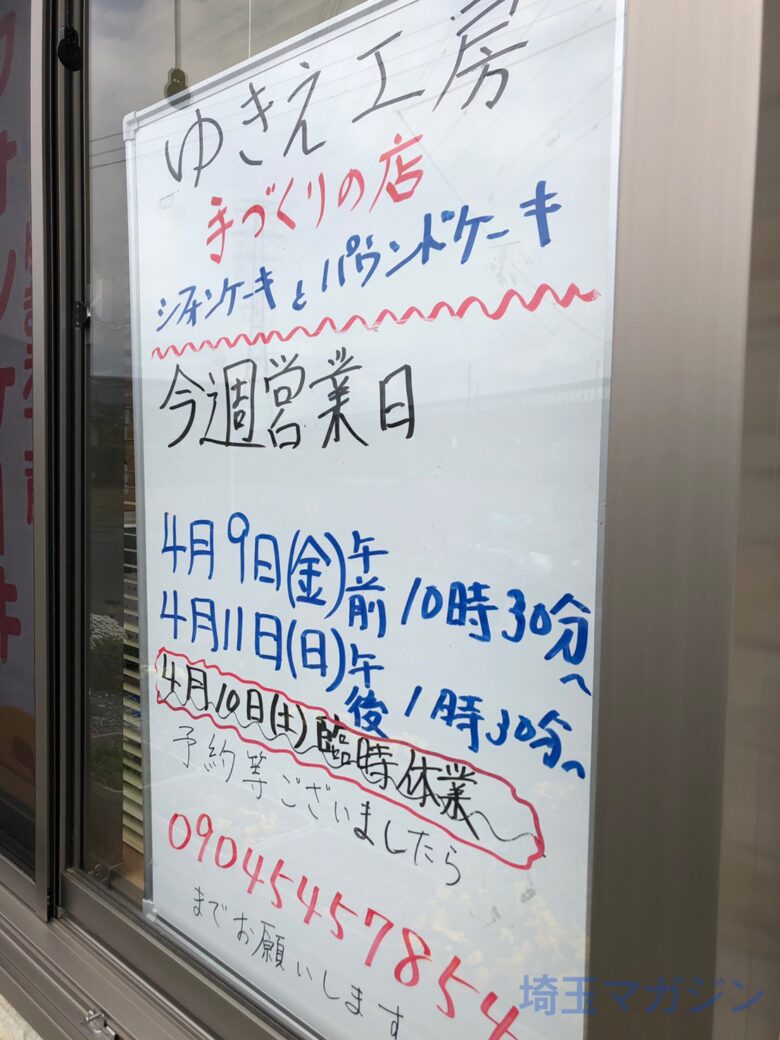 ゆきえ工房
手づくりの店
シフォンケーキとパウンドケーキ
今週営業日
4月9日(金)午前10時30分〜
4月11日(日)午後1時30分〜
4月10日(土)臨時休業
予約等ございましたら
09045457854
までお願いします
埼玉マガジン